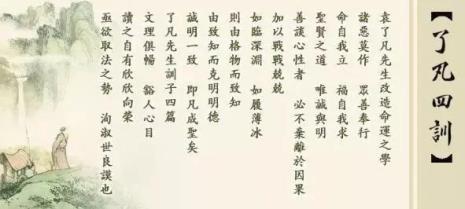 【了凡四訓】
袁了凡先生改造命運之學
諸惡莫作　眾善奉行
命自我立　福自我求
聖賢之道　唯誠與明
善談心性者　必不棄離於因果
加以戰戰兢兢
如臨深淵　如履薄冰
則由格物而致知
由致知而克明明德
誠明一致　即凡成聖矣
了凡先生訓子四篇
文理俱暢　豁人心目
讀之自有欣欣向榮
亟欲取法之勢　洵淑世良謨也